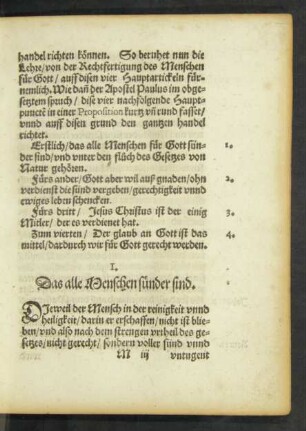 handel richten können. So beruhet nun die
Lehre/von der Rechtfertigung des Menschen
für Gott/auff disen vier Hauptartickeln für-
nemlich. Wie dañ der Apostel Paulus im obge-
setztem spruch/dise vier nachfolgende Haupt-
punctē in einer Proposition kurtz vñ rund fasset/
vnnd auff disen grund den gantzen handel
richtet.
Erstlich/das alle Menschen für Gott sün- 1.
der sind/vnd vnter den fluch des Gesetzes von
Natur gehören.
Fürs ander/Gott aber wil auß gnaden/ohn 2.
verdienst die sünd vergeben/gerechtigkeit vnnd
ewiges leben schencken.
Fürs dritt/Jesus Christus ist der einig 3.
Mitler/der es verdienet hat.
Zum vierten/Der glaub an Gott ist das 4.
mittel/dardurch wir für Gott gerecht werden.
I.
Das alle Menschen sünder sind.
DJeweil der Mensch in der reinigkeit vnnd
heiligkeit/darin er erschaffen/nicht ist blie-
ben/vnd also nach dem strengen vrtheil des ge-
setzes/nicht gerecht/sondern voller sünd vnnd
M iij vntugent